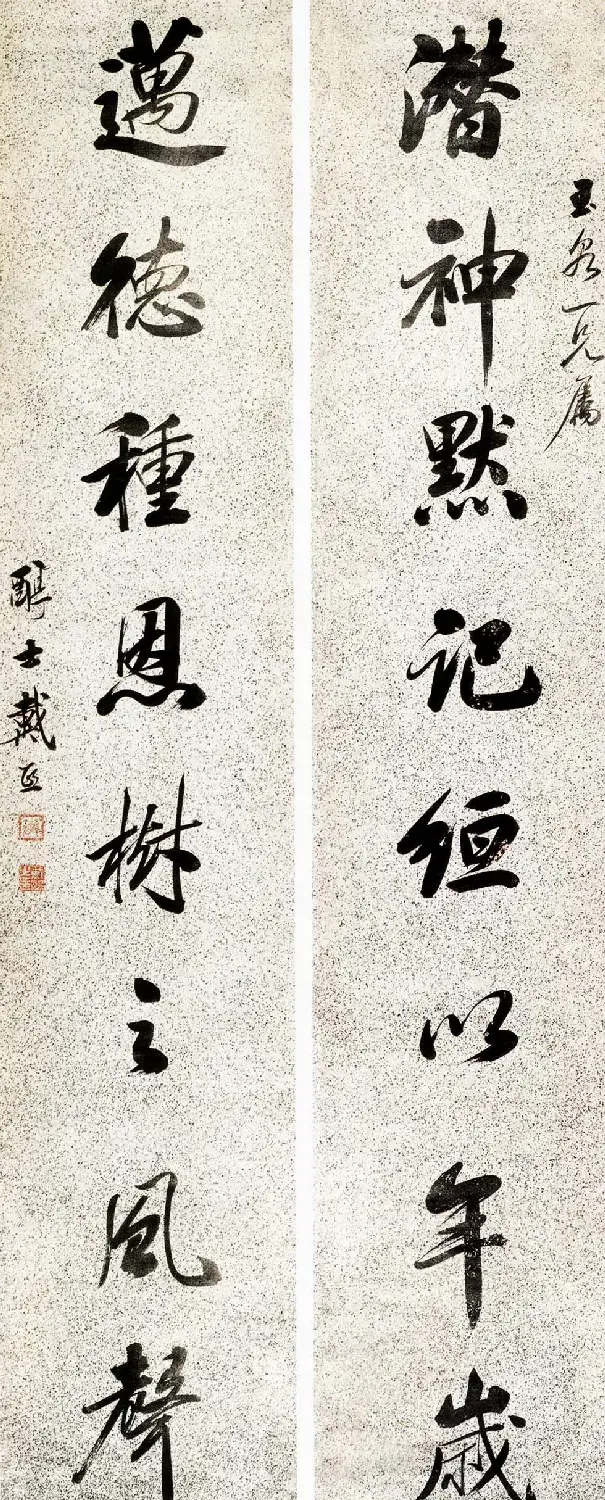 玉泉一兄屬
潛神黙記緪以年歲
邁德種恩樹之風聲
醇士戴熙